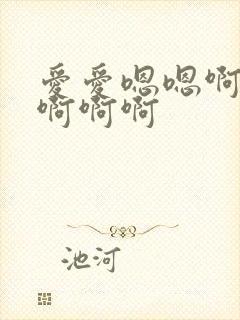 爱爱嗯嗯啊
啊啊啊
池河